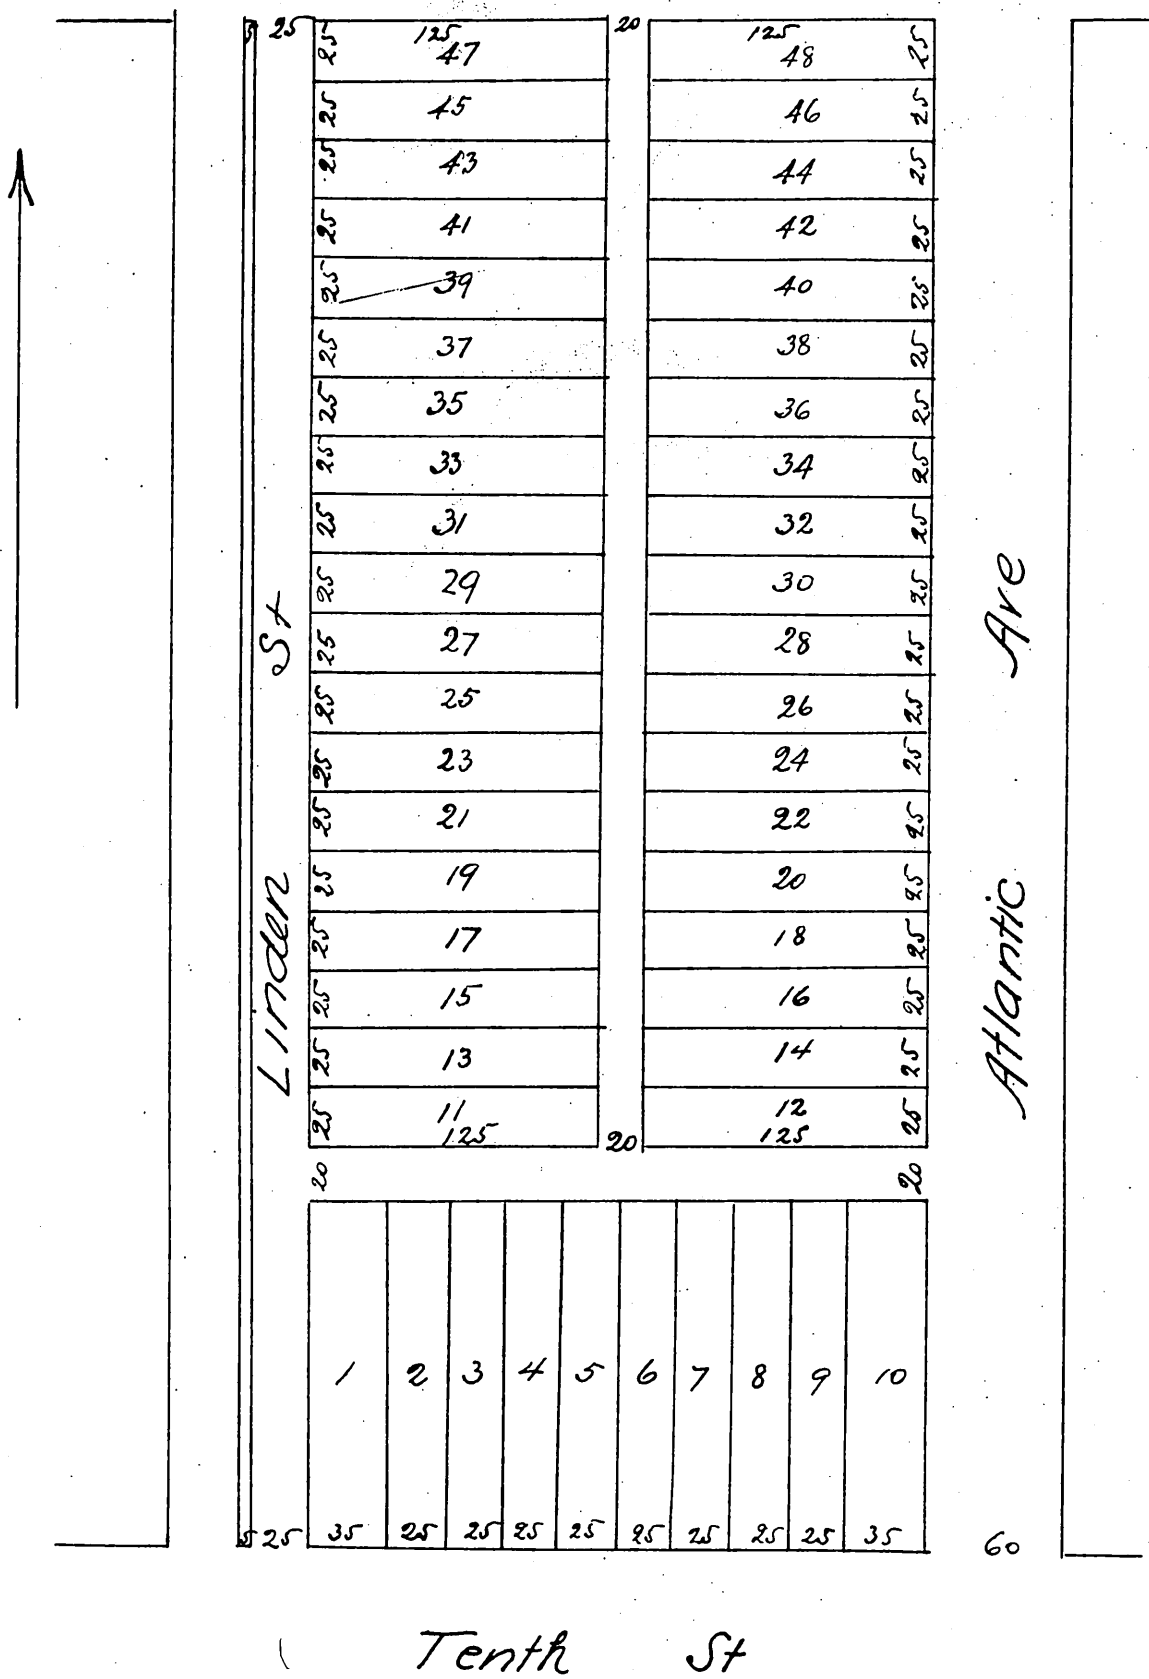 5 25 25 125 20 125 25
47 48
25 45 46 25
25 43 44 25
25 41 42 25
25 39 40 25
25 37 38 25
25 35 36 25
25 33 34 25
25 31 32 25
25 29 30 25
25 27 28 25
25 25 26 25
25 23 24 25
25 21 22 25
25 19 20 25
25 17 18 25
25 15 16 25
25 13 14 25
25 11 12 25
125 20 125
20 20
Linden St
Atlantic Ave
1 2 3 4 5 6 7 8 9 10
5 25 35 25 25 25 25 25 25 25 25 35 60
Tenth St